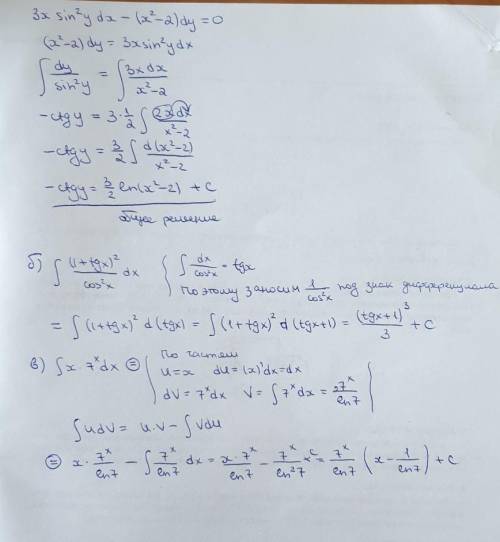 3x sin²y dx − (x²−2)dy = 0
(x²−2)dy = 3x sin²y dx
∫ dy/sin²y = ∫ 3x dx/x²−2
−ctg y = 3·1/2 ∫ 2x dx/x²−2
−ctg y = 3/2 ∫ d(x²−2)/x²−2
−ctg y = 3/2 ln(x²−2) + C
общее решение
б) ∫ (1+tgx)²/cos²x dx { ∫ dx/cos²x = tgx
Поэтому заносим 1/cos²x под знак дифференциала
= ∫ (1+tgx)² d(tgx) = ∫ (1+tgx)² d(tgx+1) = (tgx+1)³/3 + C
в) ∫ x·7ˣdx ⊜ { По частям
u = x du = (x)'dx = dx
dV = 7ˣdx V = ∫ 7ˣdx = 7ˣ/ln7 }
∫ u dV = u·V − ∫ V du
⊜ x · 7ˣ/ln7 − ∫ 7ˣ/ln7 dx = x·7ˣ/ln7 − 7ˣ/ln²7 + C = 7ˣ/ln7 (x − 1/ln7) + C